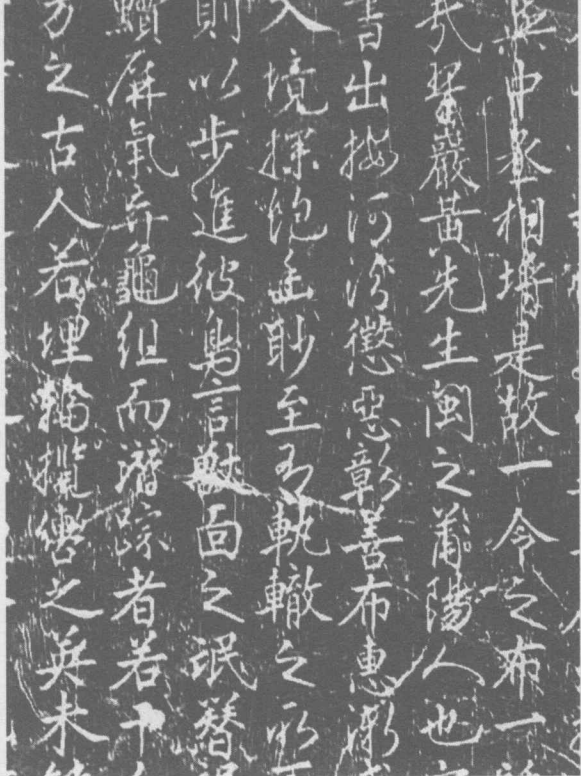 與中丞相埒是故一令之布一
翠巖黃先生閩之莆陽人也
書出按河汾懲惡彰善布惠
入境探絶壑眇至于軌轍之所
則以步進彼鳥言獸面之氓
屏氣弃龜組而潛踪者若干
方之古人若埋輪攬轡之英未